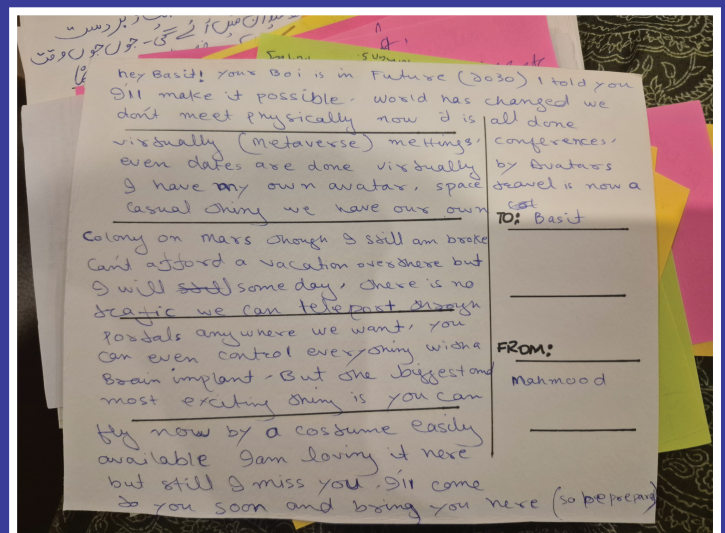 hey Basit! Your Boi is in Future (2030) I told you
I'll make it possible. World has changed we
don't meet physically now it is all done
virtually (metaverse) mettings, conferences,
even dates are done virtually by Avatars
I have my own avatar, space travel is now a
casual thing we have our own
TO: Basit
Colony on mars though I still am broke
can't afford a vacation overthere but
I will some day, there is no
trafic we can teleport through
portals anywhere we want, you
can even control everything witha
Brain implant. But the biggest and
most exciting thing is you can
fly now by a costume easily
available I am loving it here
but still I miss you. I'll come
to you soon and bring you here (so be prepare)
FROM:
Mahmood